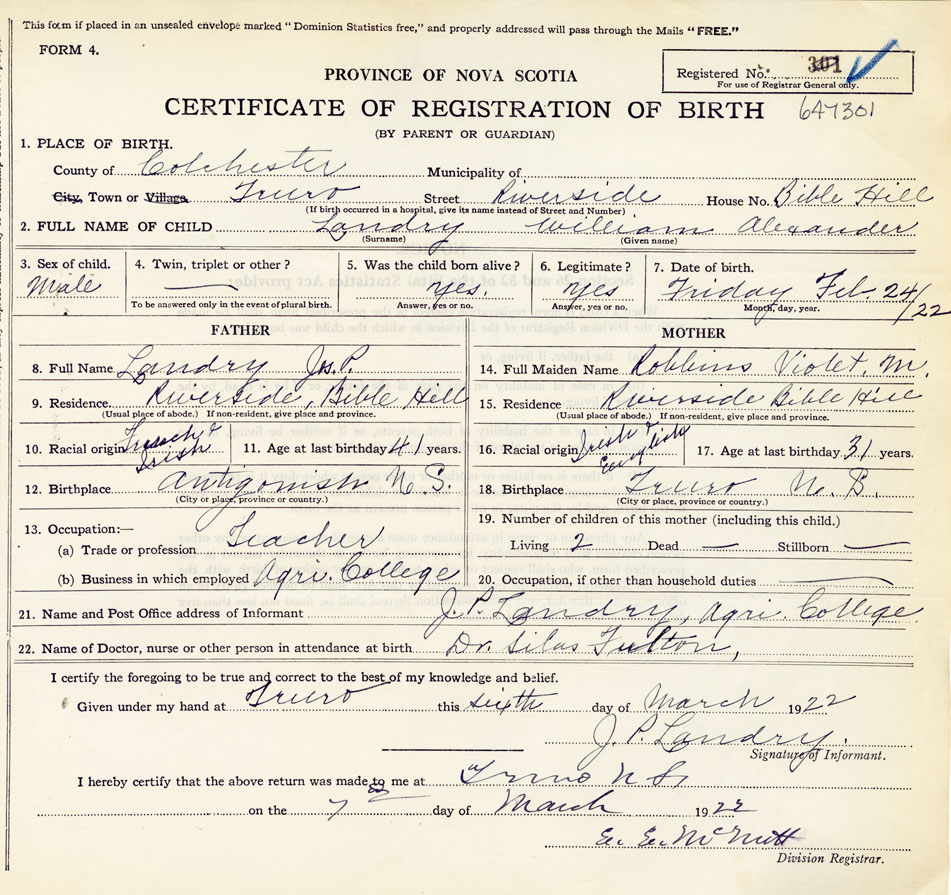 This form if placed in an unsealed envelope marked "Dominion Statistics free," and properly addressed will pass through the Mails "FREE."
FORM 4.
Registered No. 301
For use of Registrar General only.
PROVINCE OF NOVA SCOTIA
CERTIFICATE OF REGISTRATION OF BIRTH 647301
(BY PARENT OR GUARDIAN)
1. PLACE OF BIRTH.
County of Colchester Municipality of
City, Town or Village Truro Street Riverside House No. Bible Hill
(If birth occurred in a hospital, give its name instead of Street and Number)
2. FULL NAME OF CHILD Landry William Alexander
(Surname) (Given name)
3. Sex of child. 4. Twin, triplet or other? 5. Was the child born alive? 6. Legitimate? 7. Date of birth.
Male — yes. yes Friday Feb. 24/22
To be answered only in the event of plural birth. Answer, yes or no. Answer, yes or no. Month, day, year.
FATHER MOTHER
8. Full Name Landry Jos. P. 14. Full Maiden Name Robbins Violet. M.
9. Residence Riverside, Bible Hill 15. Residence Riverside Bible Hill
(Usual place of abode.) If non-resident, give place and province. (Usual place of abode.) If non-resident, give place and province.
10. Racial origin French & Irish 11. Age at last birthday 41 years. 16. Racial origin Irish & English 17. Age at last birthday 31 years.
12. Birthplace Antigonish N.S. 18. Birthplace Truro N.B.
(City or place, province or country.) (City or place, province or country.)
13. Occupation:— 19. Number of children of this mother (including this child.)
(a) Trade or profession Teacher Living 2 Dead — Stillborn —
(b) Business in which employed Agri. College 20. Occupation, if other than household duties —
21. Name and Post Office address of Informant J. P. Landry, Agri. College
22. Name of Doctor, nurse or other person in attendance at birth Dr. Silas Fulton,
I certify the foregoing to be true and correct to the best of my knowledge and belief.
Given under my hand at Truro this sixth day of March 1922
J. P. Landry.
Signature of Informant.
I hereby certify that the above return was made to me at Truro N.S.
on the 7 day of March 1922
E. E. McNutt
Division Registrar.